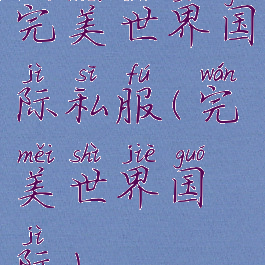 完美世界国
jì sī fú wán
际私服(完
měi shì jiè guó
美世界国
jì
际)